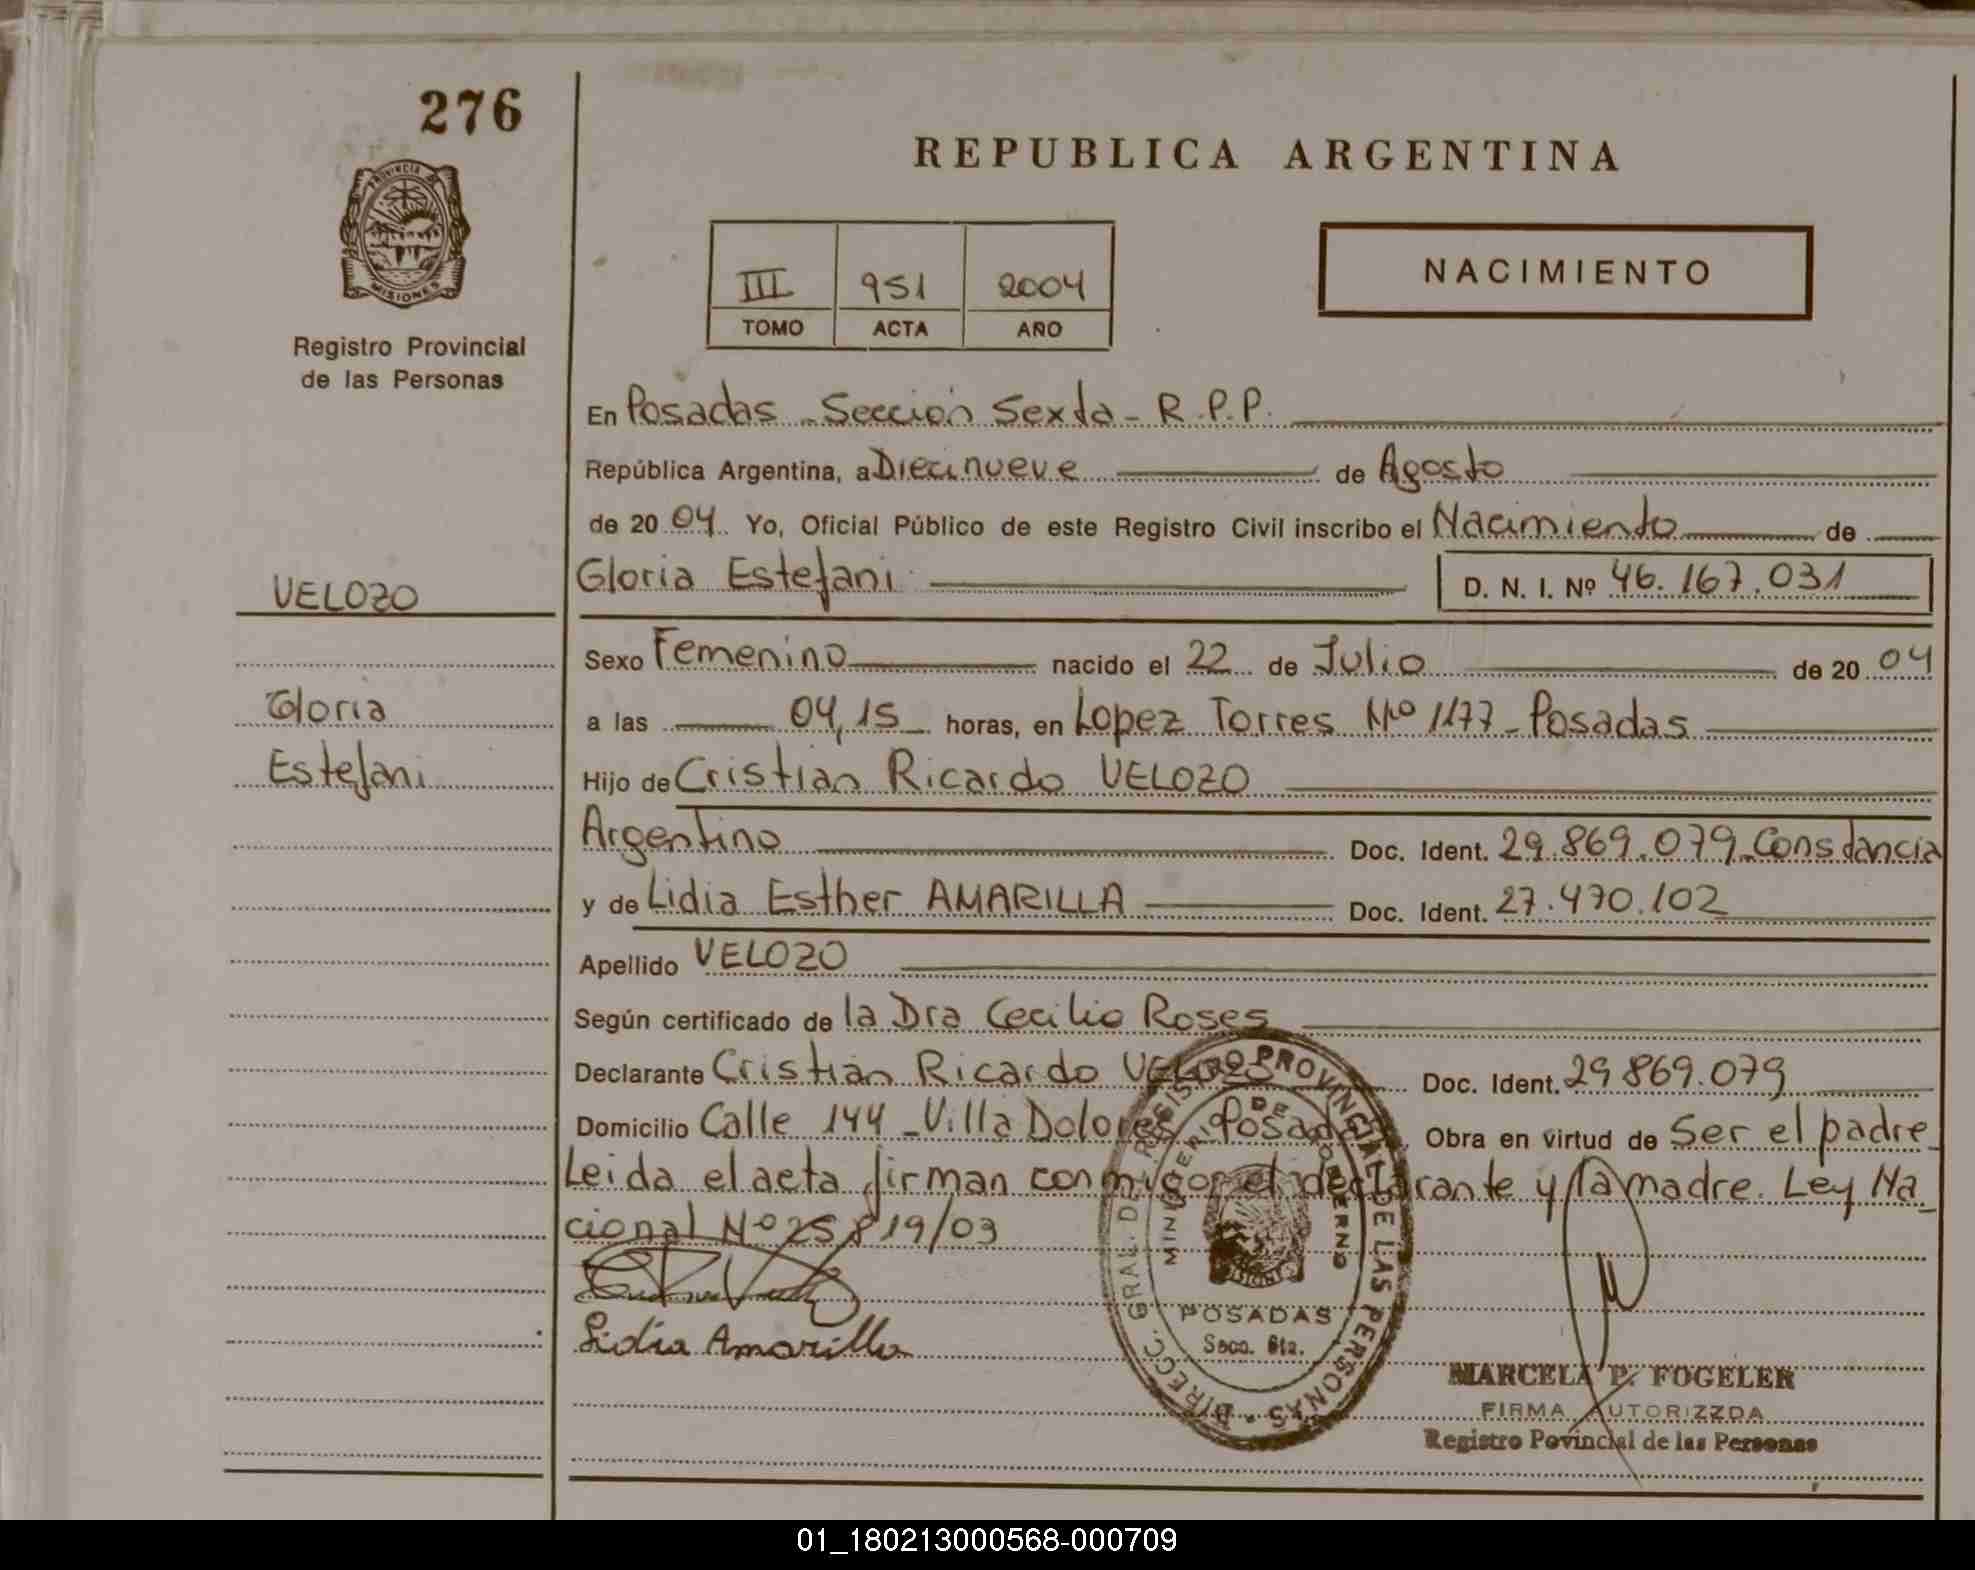 276
PROVINCIA DE
MISIONES
Registro Provincial
de las Personas
VELOZO
Gloria
Estefani
REPUBLICA ARGENTINA
III 951 2004
TOMO ACTA AÑO
NACIMIENTO
En Posadas - Sección Sexta - R.P.P.
República Argentina, a Diecinueve de Agosto
de 20 04 Yo, Oficial Público de este Registro Civil inscribo el Nacimiento de
Gloria Estefani D. N. I. Nº 46.167.031
Sexo Femenino nacido el 22 de Julio de 20 04
a las 04,15 horas, en Lopez Torres Nº 1177 - Posadas
Hijo de Cristian Ricardo VELOZO
Argentino Doc. Ident. 29.869.079 - Constancia
y de Lidia Esther AMARILLA Doc. Ident. 27.470.102
Apellido VELOZO
Según certificado de la Dra Cecilia Roses
Declarante Cristian Ricardo VELOZO Doc. Ident. 29869.079
Domicilio Calle 144 - Villa Dolores - Posadas Obra en virtud de Ser el padre
Leida el acta firman conmigo el declarante y la madre. Ley Na_
cional Nº 25819/03
Lidia Amarilla
DIRECC. GRAL. DE REGISTRO PROVINCIAL DE LAS PERSONAS
MINISTERIO DE GOBIERNO
MISIONES
POSADAS
Secc. 6ta.
MARCELA P. FOGELER
FIRMA AUTORIZZDA
Registro Povincial de las Personas
01_180213000568-000709